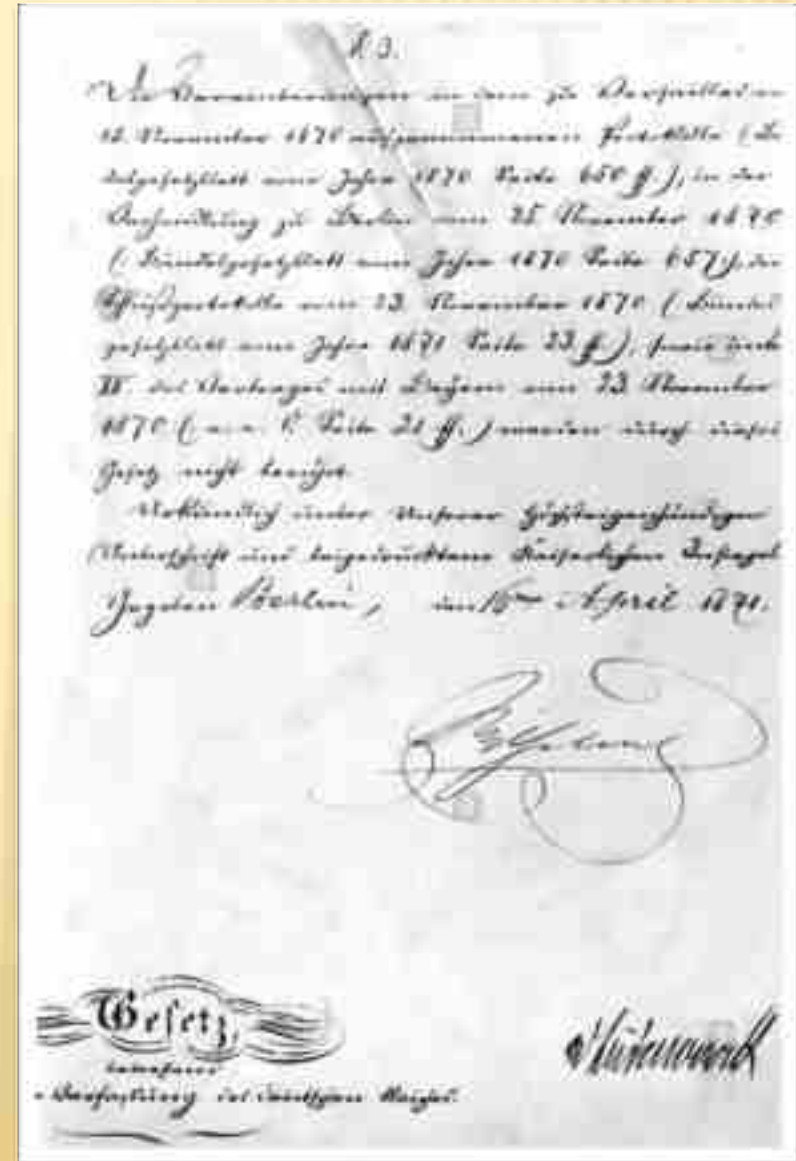 § 3.
Die Vereinbarungen in dem zu Versailles am
15. November 1870 aufgenommenen Protokolle (Bun
desgesetzblatt vom Jahre 1870 Seite 650 ff.), in der
Verhandlung zu Berlin vom 25 November 1870
(Bundesgesetzblatt vom Jahre 1870 Seite 657), dem
Schlußprotokolle vom 23. November 1870 (Bundes
gesetzblatt vom Jahre 1871 Seite 23 ff.), sowie unter
IV. des Vertrages mit Bayern vom 23 November
1870 (a. a. O. Seite 21 ff.) werden durch dieses
Gesetz nicht berührt.
Urkundlich unter Unserer Höchsteigenhändigen
Unterschrift und beigedrucktem Kaiserlichen Insiegel
Gegeben Berlin, den 16ten April 1871.
Wilhelm
Gesetz,
betreffend
Verfassung des deutschen Reiches.
v Bismarck